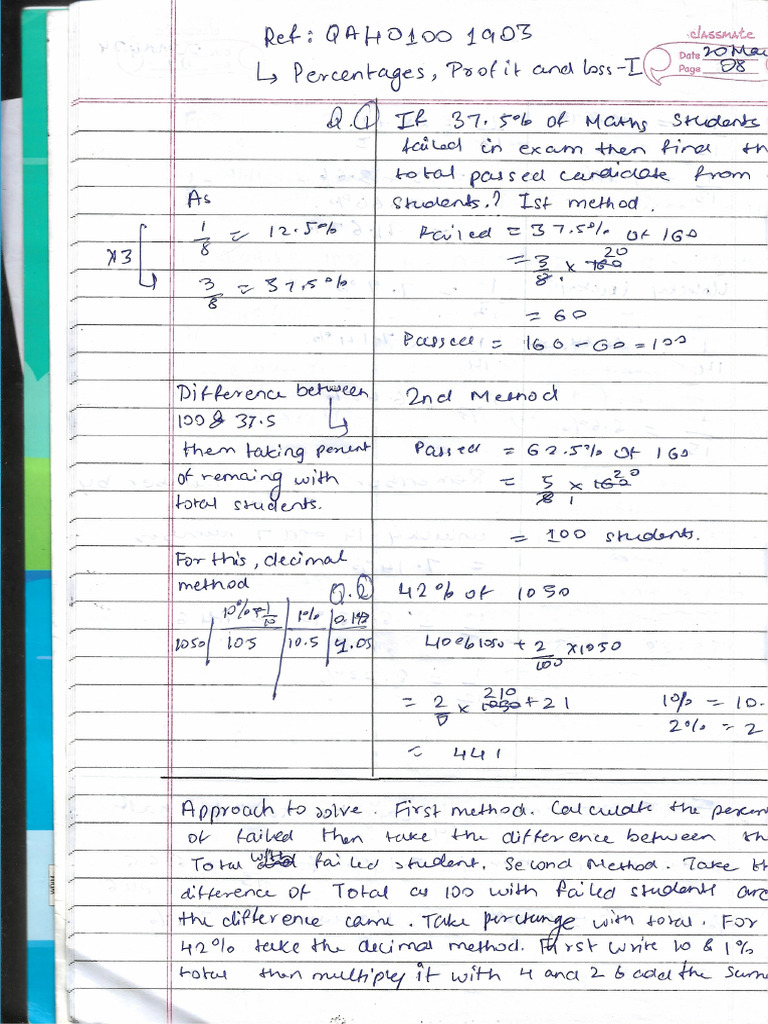 Ref: QAHO100 1903
classmate
Date 20 Mar
Page 08
↳ Percentages, Profit and loss-I
Q.① If 37.5% of Maths Students
failed in exam then find th
total passed candidate from
students.? Ist method.
As
1/8 = 12.5%
x3
3/8 = 37.5%
Failed = 37.5% of 160
= 3/8 x 160 20
= 60
Passed = 160 - 60 = 100
Difference between
100 & 37.5
them taking percent
of remaing with
total students.
2nd Method
Passed = 62.5% of 160
= 5/8 x 160 20
1
= 100 students.
For this, decimal
method
10%=1/10 | 1% |
1050 | 105 | 10.5 |
Q.② 42% of 1050
40%1050 + 2/100 x1050
= 2/5 x 1050 210 + 21
1% = 10.
2% = 2
= 441
Approach to solve. First method. Calculate the percen
of failed then take the difference between th
Total with failed student. Second Method. Take th
difference of Total as 100 with failed students are
the difference came. Take perchange with total. For
42% take the decimal method. First write 10 & 1%
total then multiply it with 4 and 2 & add the same